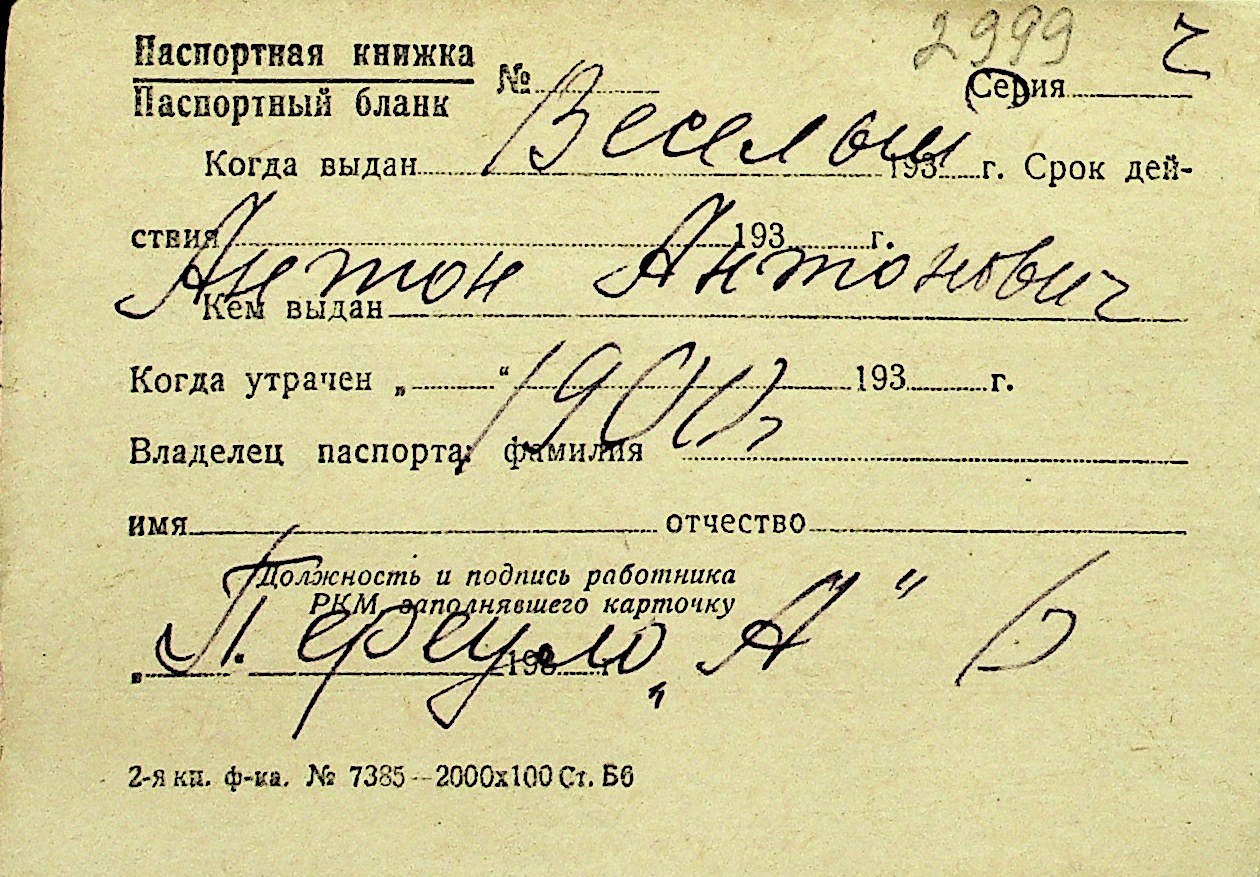 2999 г
Паспортная книжка
Паспортный бланк
№ Серия
Веселый
Когда выдан 193 г. Срок дей-
ствия 193 г.
Антон Антонович
Кем выдан
Когда утрачен „ “ 193 г.
Владелец паспорта: фамилия
имя отчество
Должность и подпись работника
РКМ, заполнявшего карточку
„ 193 г.
"А" 6
2-я кн. ф-ка. № 7385—2000х100 Ст. Б6